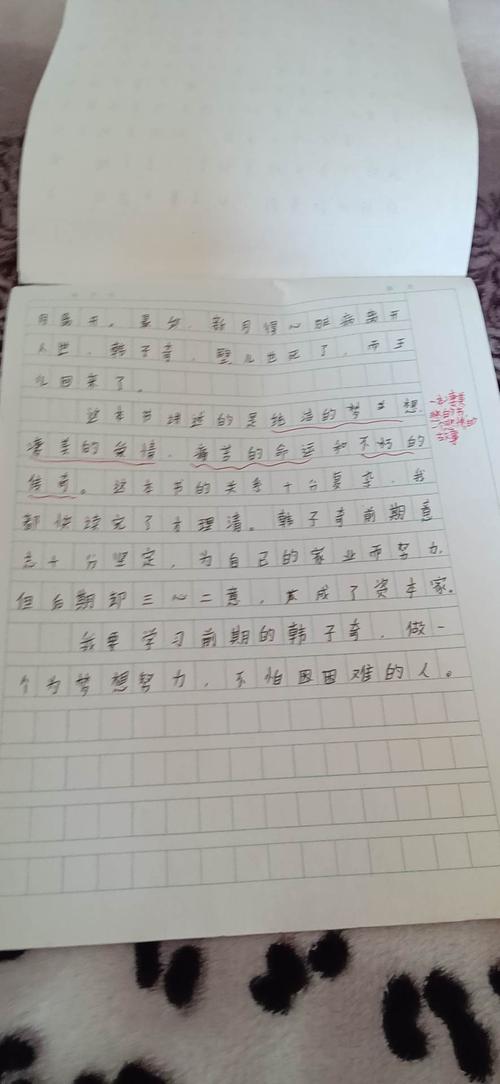 月离开。最后，新月得心脏病离开
人世，韩子奇，璧儿也死了，而玉
儿回来了。
这本书讲述的是纯洁的梦想
凄美的爱情，痛苦的命运和不朽的
传奇。这本书的关系十分复杂，我
都快读完了才理清。韩子奇前期意
志十分坚定，为自己的家业而努力，
但后期却三心二意，变成了资本家。
我要学习前期的韩子奇，做一
个为梦想努力，不怕困难的人。
一
凄美
的
故事